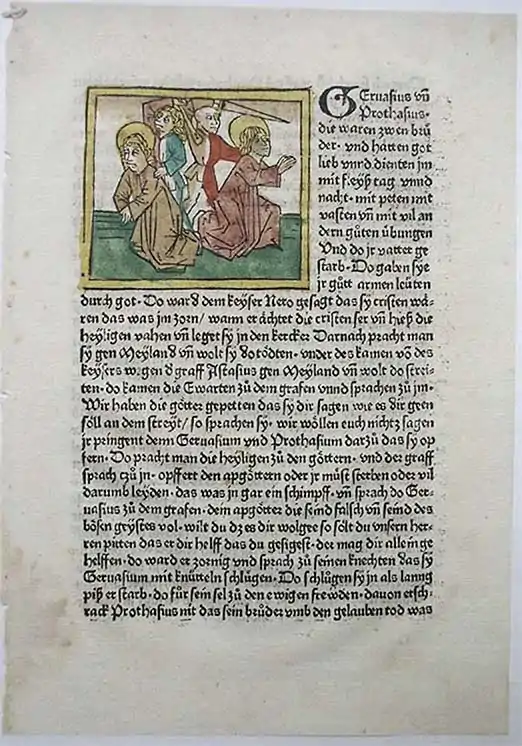 GErvasius vñ
Prothasius·
die waren zwen brů
der· vnd hatten got
lieb vnnd dienten jm
mit fleyß tag vnnd
nacht· mit peten mit
vasten vñ mit vil an
dern gůten übungen
Vnd do jr vatter ge
starb· Do gaben sye
jr gůtt armen leüten
durch got· Do ward dem keyser Nero gesagt das sy cristen wå-
ren das was im zorn/ wann er åchtet die cristen ser vñ hieß die
heyligen vahen vñ leget sy in den kercker Darnach pracht man
sy gen Meyland vñ wolt sy do tödten· vnder des kamen võ des
keysers wegen d graff Astasius gen Meyland vñ wolt do strei-
ten· do kamen die Ewarten zů dem grafen vnnd sprachen zů jm·
Wir haben die götter gepetten das sy dir sagen wie es dir geen
söll an dem streyt/ so sprachen sy· wir wöllen euch nicht sagen
jr pringent denn Gervasium vnd Prothasium darzů das sy op
fern· Do pracht man die heyligen zů den göttern· vnd der graff
sprach czů jn· opffert den apgöttern oder jr můst sterben oder vil
darumb leyden· das was jn gar ein schimpff· vñ sprach do Ger-
vasius zů dem grafen· dein apgötter die seind falsch vñ seind des
bösen geystes vol· wilt du dz es dir wol gee so solt du vnsern her-
ren pitten das er dir helff das du gesigest· der mag dir allein ge
helffen· do ward er zornig vnd sprach zů seinen knechten das sy
Gervasium mit knütteln schlügen· Do schlůgen sy jn als lanng
piß er starb· do fůr sein sel zů den ewigen frewden· davon ersch-
rack Prothasius nit das sein brůder vmb den gelauben tod was